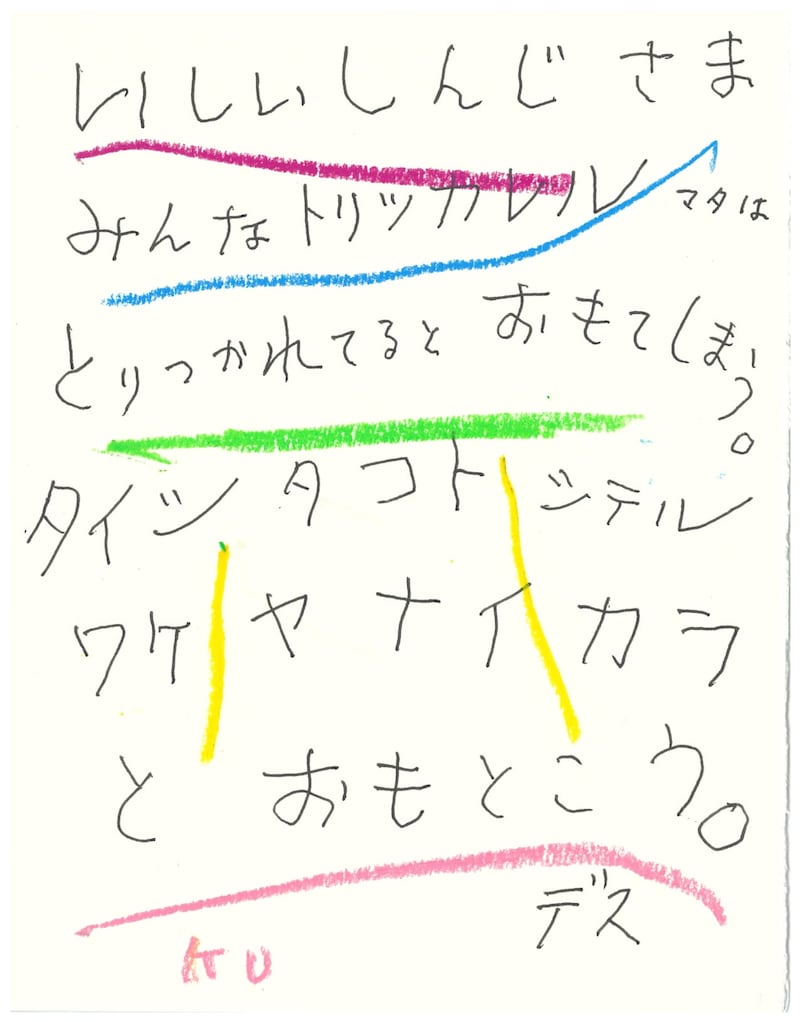 いしいしんじ さま
みんなトリツカレル マタは
とりつかれてると おもてしまう。
タイシタコトシテル
ワケヤナイカラ
と おもとこう。
デス